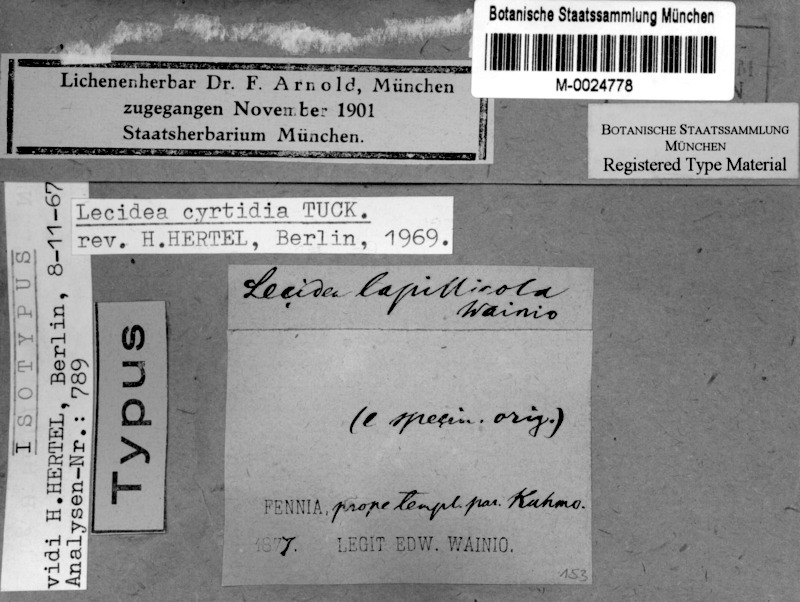 Botanische Staatssammlung München
M-0024778
Lichenenherbar Dr. F. Arnold, München
zugegangen November 1901
Staatsherbarium München.
BOTANISCHE STAATSSAMMLUNG
MÜNCHEN
Registered Type Material
Lecidea cyrtidia TUCK.
rev. H.HERTEL, Berlin, 1969.
ISOTYPUS
vidi H.HERTEL, Berlin, 8-11-67
Analysen-Nr.: 789
Typus
Lecidea lapillicola
Wainio
(e specim. orig.)
FENNIA, prope templ. par. Kuhmo.
1877. LEGIT EDW. WAINIO.
153